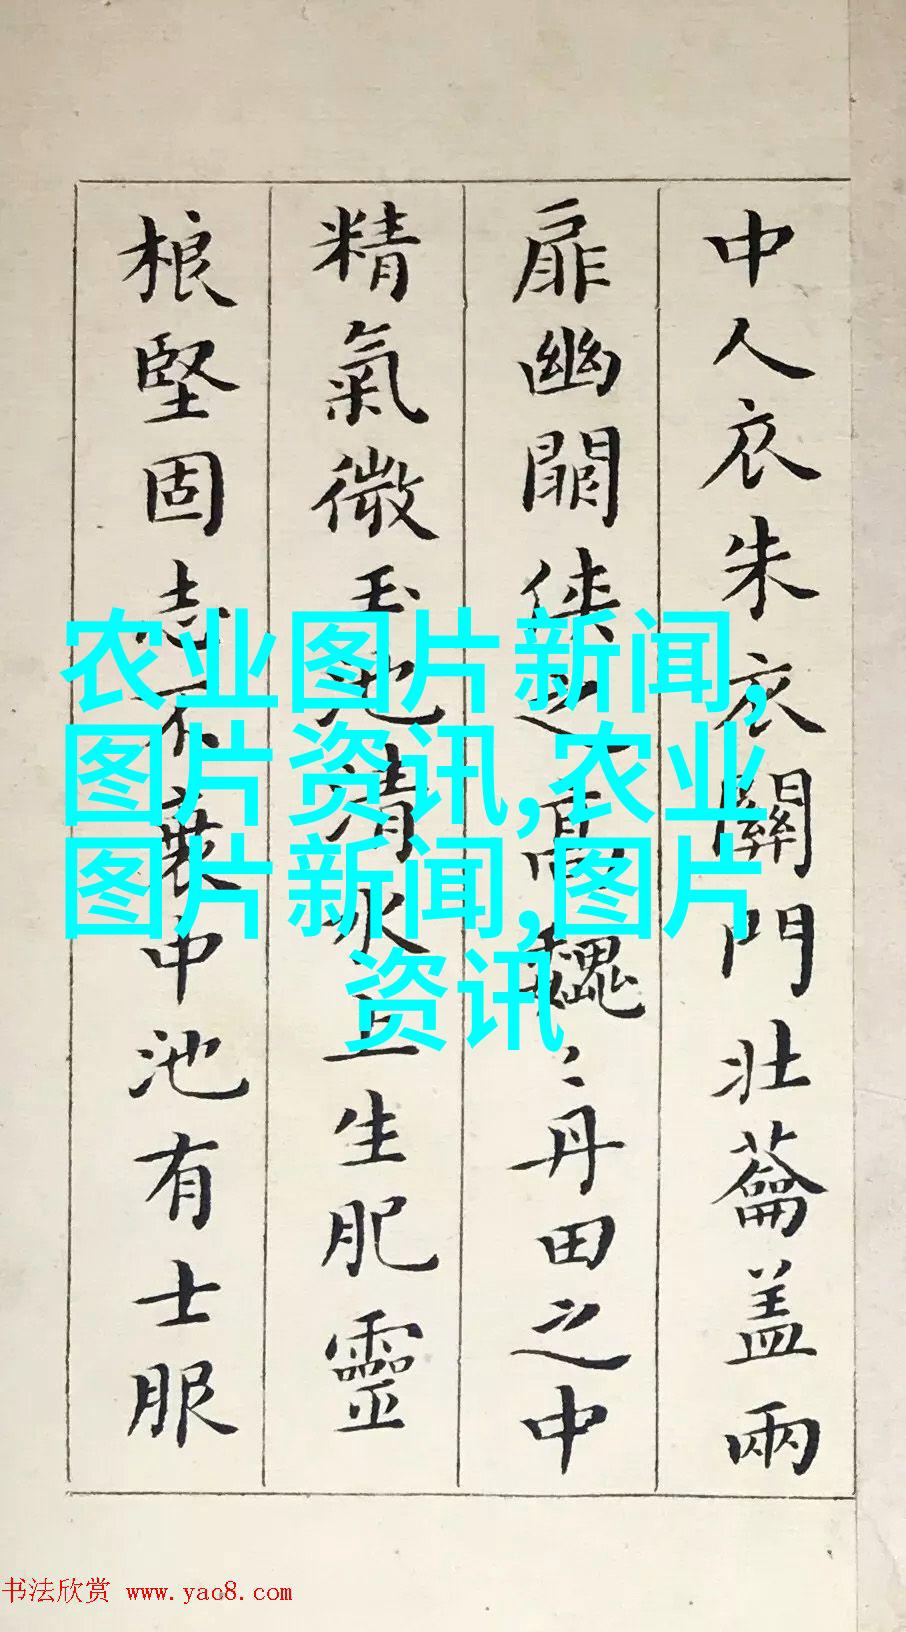 中人衣朱衣關門壯蘥盖兩
扉幽闗侠之高魏〻丹田之中
精氣微玉池清水上生肥靈
根堅固志不衰中池有士服
农业图片新闻,
图片资讯,农业
图片新闻,图片
资讯
书法欣赏 www.yac8.com